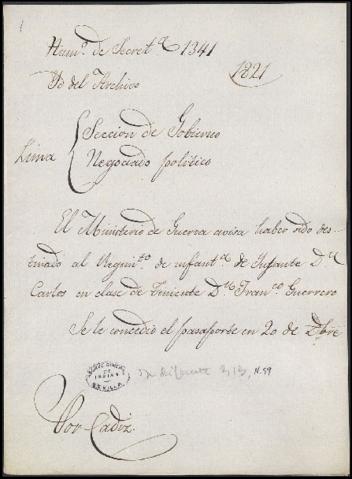 Num.º de Secret.ª 1341
Yd del Archivo
1821
Lima
Seccion de Gobierno
Negociado politico
El Ministerio de Guerra avisa haber sido des-
tinado al Regimi.to de infant.ª de Infante D.n
Carlos en clase de Teniente D.n Fran.co Guerrero
Se le concedió el pasaporte en 20 de Dbre
ARCHIVO GENERAL
DE
INDIAS
SEVILLA
313, N.59
Por Cadiz.